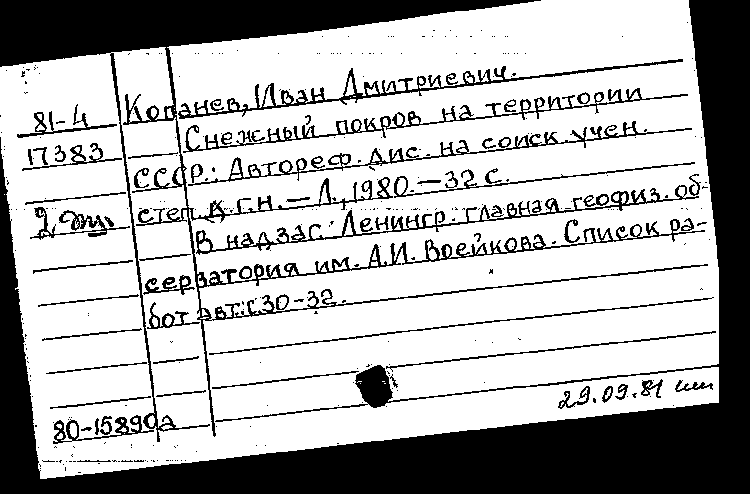 81-4 Копанев, Иван Дмитриевич.
17383 Снежный покров на территории
СССР.: Автореф. дис. на соиск. учен.
2 степ. д.г.н. — Л., 1980. — 32 с.
В надзаг.: Ленингр. главная геофиз. об-
серватория им. А.И. Воейкова. Список ра-
бот авт.: с.30-32.
80-15890а
29.09.81